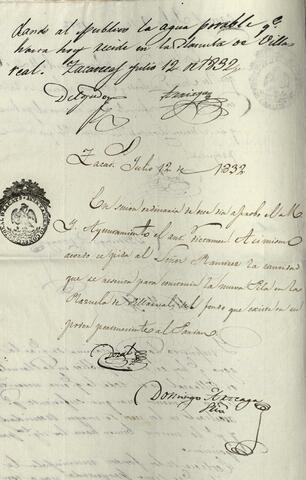 dando al publico la agua potable qe.
havia hoy acede en la Plazuela de Villa
real. Zacatecas Julio 12 de 1832.
Delgado
Enriquez
Zacats. Julio 12 de 1832
En sesion ordinaria de este dia aprobó el M.
Y. Ayuntamiento el ante. dictamen. Asimismo
acordó se pida al Señor Ramirez la cantidad
que se necesita para construir la nueva Pila en la
Plazuela de Villareal, del fondo que existe en su
poder perteneciente al Parian.
Domingo